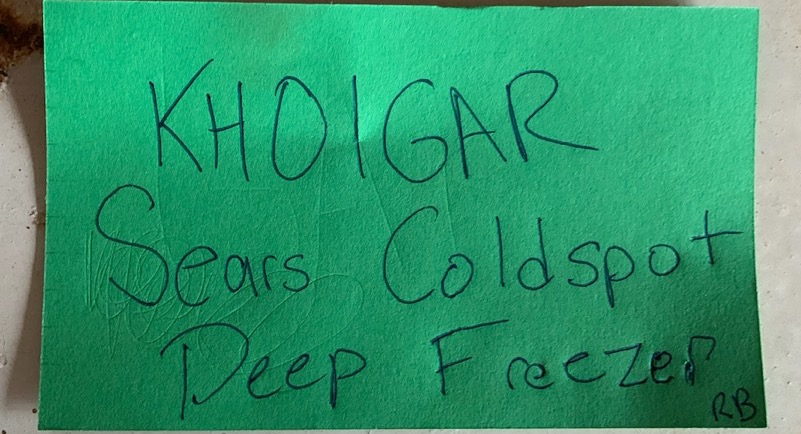 KHOIGAR
Sears Coldspot
Deep Freezer
RB